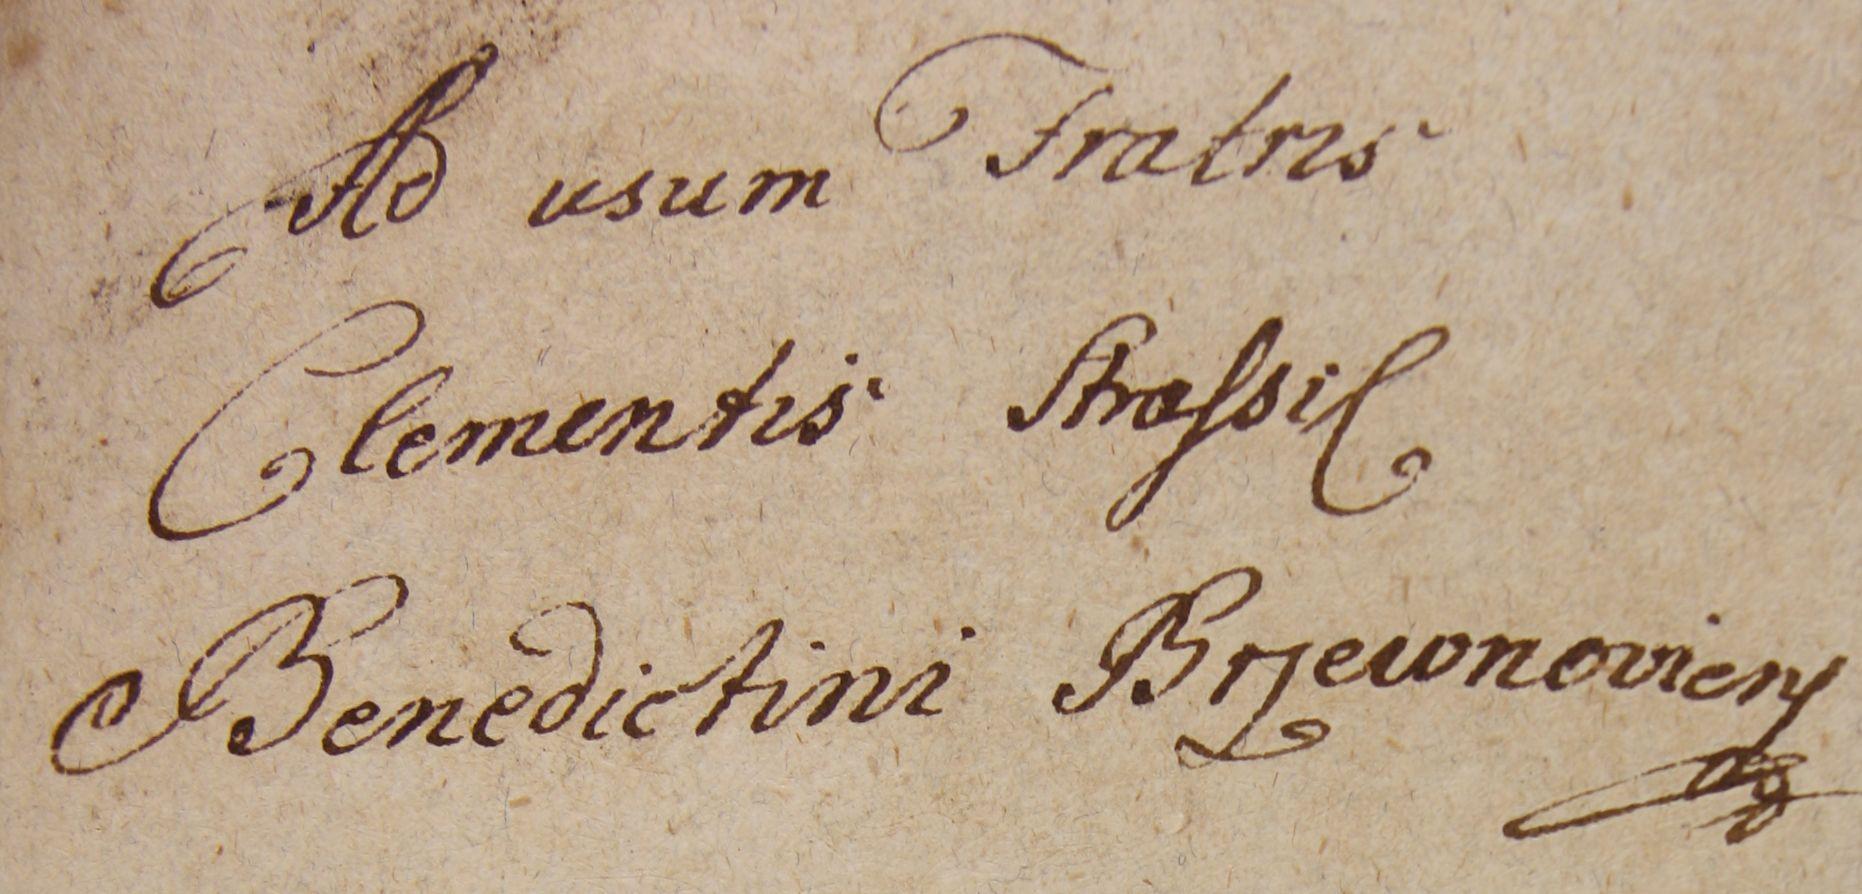 Ad usum Fratris
Clementis Straſsil
Benedictini Brzewnoviens